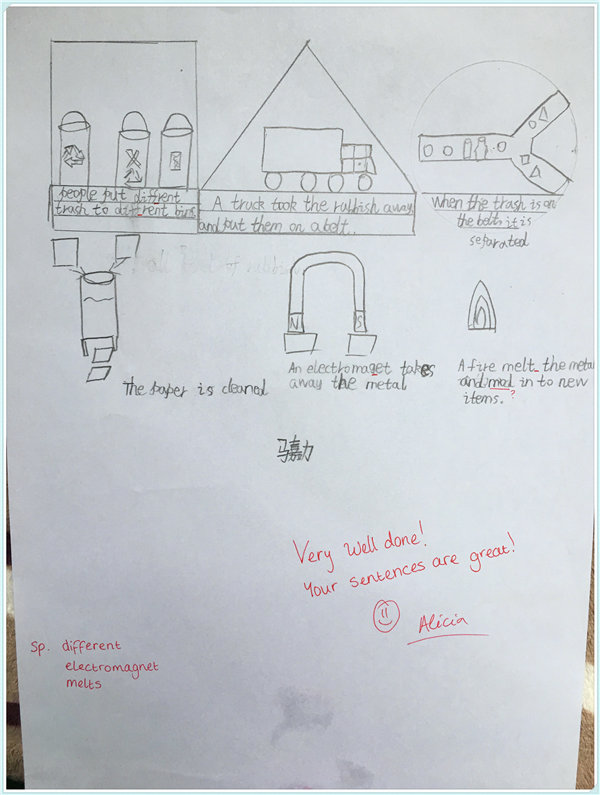 people put diffrent
trash to different bins
A truck took the rubbish away
and put them on a belt.
when the trash is on
the belt, it is
separated
The paper is cleaned
N S
An electromaget takes
away the metal
A fire melt the metal
and mod in to new
items. ?
马嘉励
Very well done!
Your sentences are great!
Alicia
Sp. different
electromagnet
melts